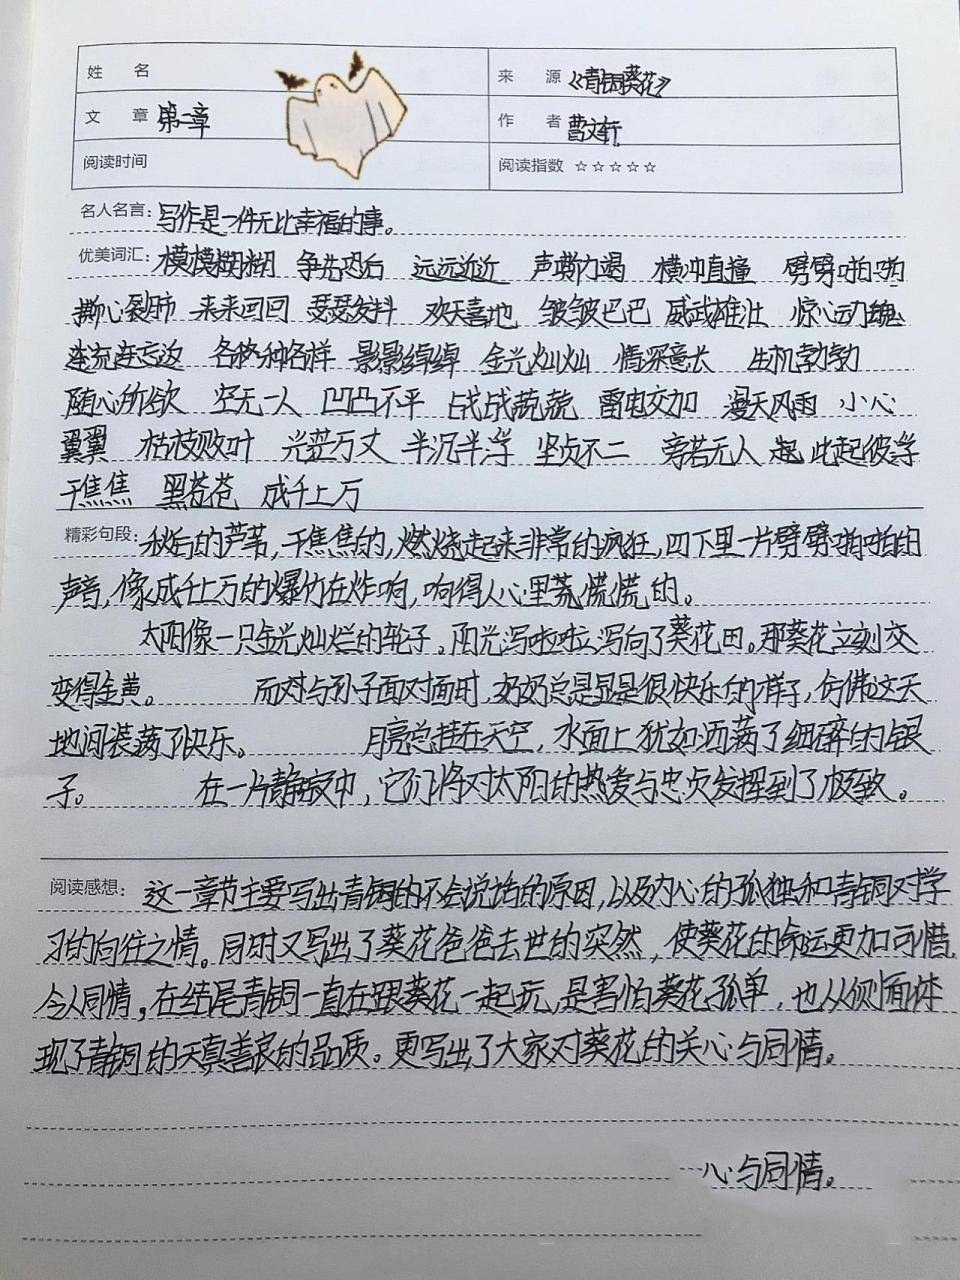 姓 名 来 源 《青铜葵花》
文 章 第二章 作 者 曹文轩
阅读时间 阅读指数 ☆☆☆☆☆
名人名言: 写作是一件无比幸福的事。
优美词汇: 模模糊糊 争先恐后 远远近近 声嘶力竭 横冲直撞 劈劈啪啪
撕心裂肺 来来回回 瑟瑟发抖 欢天喜地 皱皱巴巴 威武雄壮 惊心动魄
连流连忘返 各种各样 影影绰绰 金光灿灿 情深意长 生机勃勃
随心所欲 空无一人 凹凸不平 战战兢兢 雷电交加 漫天风雨 小心
翼翼 枯枝败叶 光芒万丈 半沉半浮 坚贞不二 旁若无人 此起彼浮
干焦焦 黑苍苍 成千上万
精彩句段: 秋后的芦苇,干焦焦的,燃烧起来非常的疯狂,四下里一片劈劈啪啪的
声音,像成千上万的爆竹在炸响,响得人心里荒慌慌的。
太阳像一只金光灿烂的轮子。阳光泻啦啦泻向了葵花田。那葵花立刻变
变得金黄。 而对与孙子面对面时,奶奶总是显是很快乐的样子,仿佛这天
地间装满了快乐。 月亮总挂在天空,水面上犹如洒满了细碎的银
子。 在一片静寂中,它们将对太阳的热爱与忠贞发挥到了极致。
阅读感想: 这一章节主要写出青铜的不会说话的原因,以及内心的孤独和青铜对学
习的向往之情。同时又写出了葵花爸爸去世的突然,使葵花的命运更加可惜,
令人同情,在结尾青铜一直在跟葵花一起玩,是害怕葵花孤单,也从侧面体
现了青铜的天真善良的品质。更写出了大家对葵花的关心与同情。
心与同情。